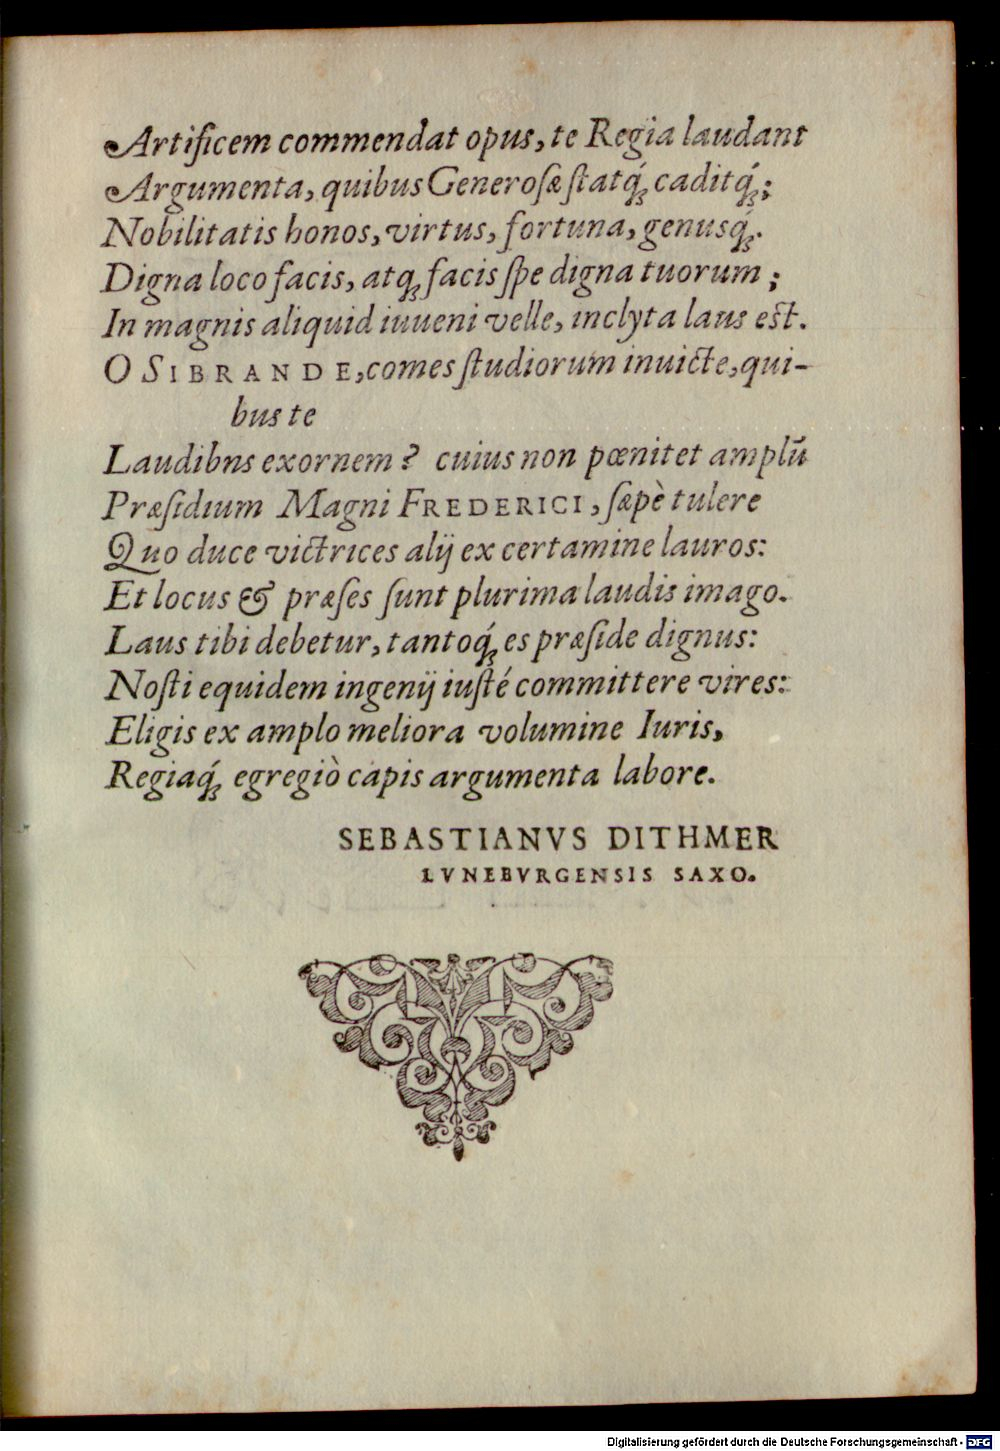 Artificem commendat opus, te Regia laudant
Argumenta, quibus Generosæ statq́; caditq́;;
Nobilitatis honos, virtus, fortuna, genusq́;.
Digna loco facis, atq; facis spe digna tuorum;
In magnis aliquid iuueni velle, inclyta laus est.
O SIBRANDE, comes studiorum inuicte, qui-
bus te
Laudibns exornem? cuius non pœnitet amplū
Præsidium Magni FREDERICI, sæpè tulere
Quo duce victrices alij ex certamine lauros:
Et locus & præses sunt plurima laudis imago.
Laus tibi debetur, tantoq́; es præside dignus:
Nosti equidem ingenij iusté committere vires:
Eligis ex amplo meliora volumine Iuris,
Regiaq́; egregiò capis argumenta labore.
SEBASTIANVS DITHMER
LVNEBVRGENSIS SAXO.
Digitalisierung gefördert durch die Deutsche Forschungsgemeinschaft - DFG